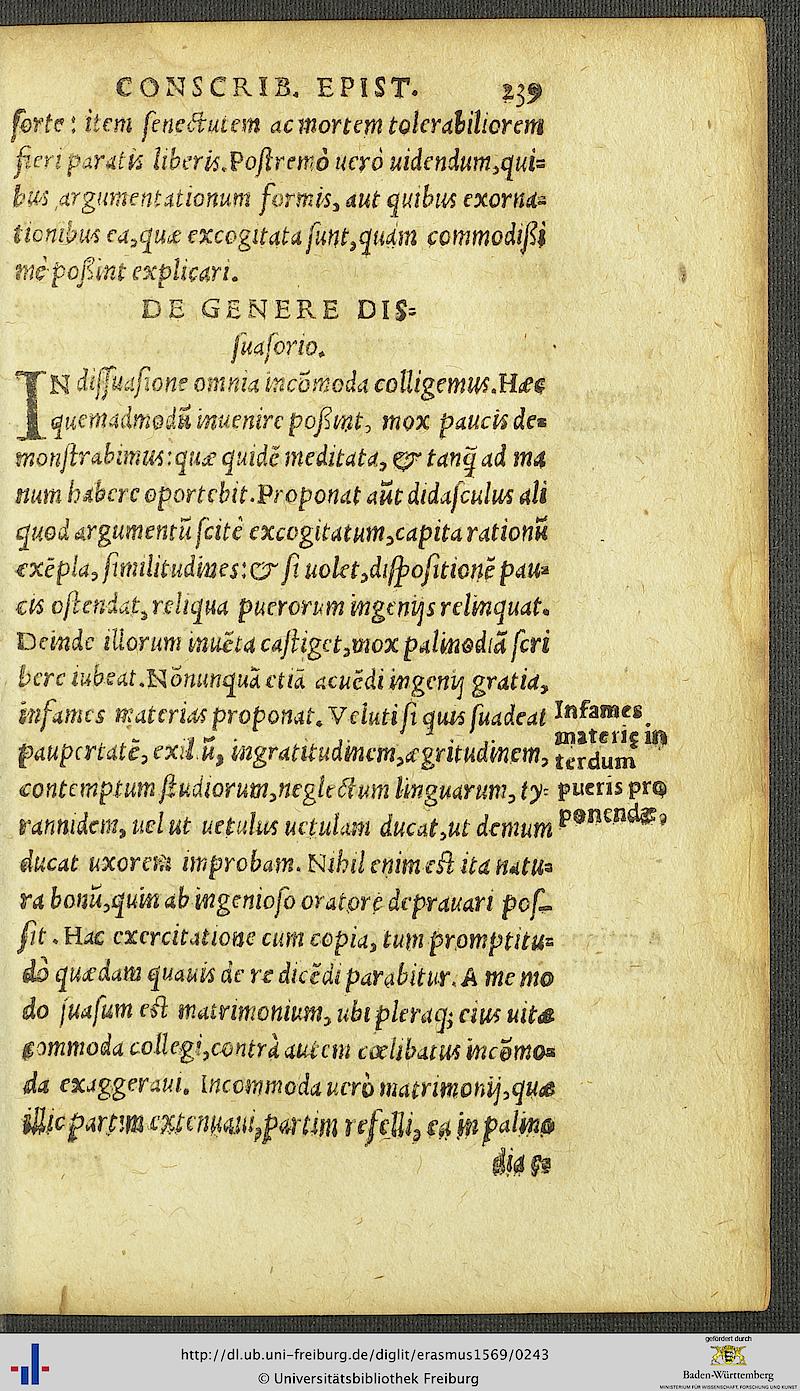 CONSCRIB. EPIST. 239
ſorte: item ſenectutem ac mortem tolerabiliorem
fieri paratis liberis. Poſtremò uerò uidendum, qui=
bus argumentationum formis, aut quibus exorna=
tionibus ea, quæ excogitata ſunt, quàm commodißi
mè poßint explicari.
DE GENERE DIS=
ſuaſorio.
IN diſſuaſione omnia incõmoda colligemus. Hæc
quemadmodũ inuenire poßint, mox paucis de=
monſtrabimus: quæ quidẽ meditata, & tanq̃ ad ma
num habere oportebit. Proponat aũt didaſculus ali
quod argumentũ ſcitè excogitatum, capita rationũ
exẽpla, ſimilitudines: & ſi uolet, diſpoſitionẽ pau=
cis oſtendat, reliqua puerorum ingenijs relinquat.
Deinde illorum inuẽta caſtiget, mox palinodiã ſcri
bere iubeat. Nõnunquã etiã acuẽdi ingenij gratia,
infames materias proponat. Veluti ſi quis ſuadeat
paupertatẽ, exiliũ, ingratitudinem, ægritudinem,
contemptum ſtudiorum, neglectum linguarum, ty=
rannidem, uel ut uetulus uetulam ducat, ut demum
ducat uxorem improbam. Nihil enim eſt ita natu=
ra bonũ, quin ab ingenioſo oratore deprauari poſ=
ſit. Hac exercitatione cum copia, tum promptitu=
do quædam quauis de re dicẽdi parabitur. A me mo
do ſuaſum eſt matrimonium, ubi pleraq; eius uitæ
commoda collegi, contrà autem cœlibatus incõmo=
da exaggeraui. Incommoda uerò matrimonij, quæ
illic partim extenuaui, partim refelli, ea in palino
dia
Infames
materię in
terdum
pueris pro
ponendæ,
http://dl.ub.uni-freiburg.de/diglit/erasmus1569/0243
© Universitätsbibliothek Freiburg
gefördert durch
Baden-Württemberg
MINISTERIUM FÜR WISSENSCHAFT, FORSCHUNG UND KUNST